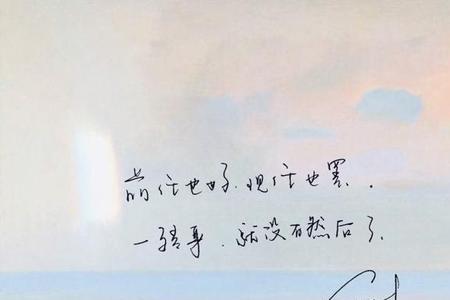 前任也好.现任也罢.
一转身.就没有然后了.